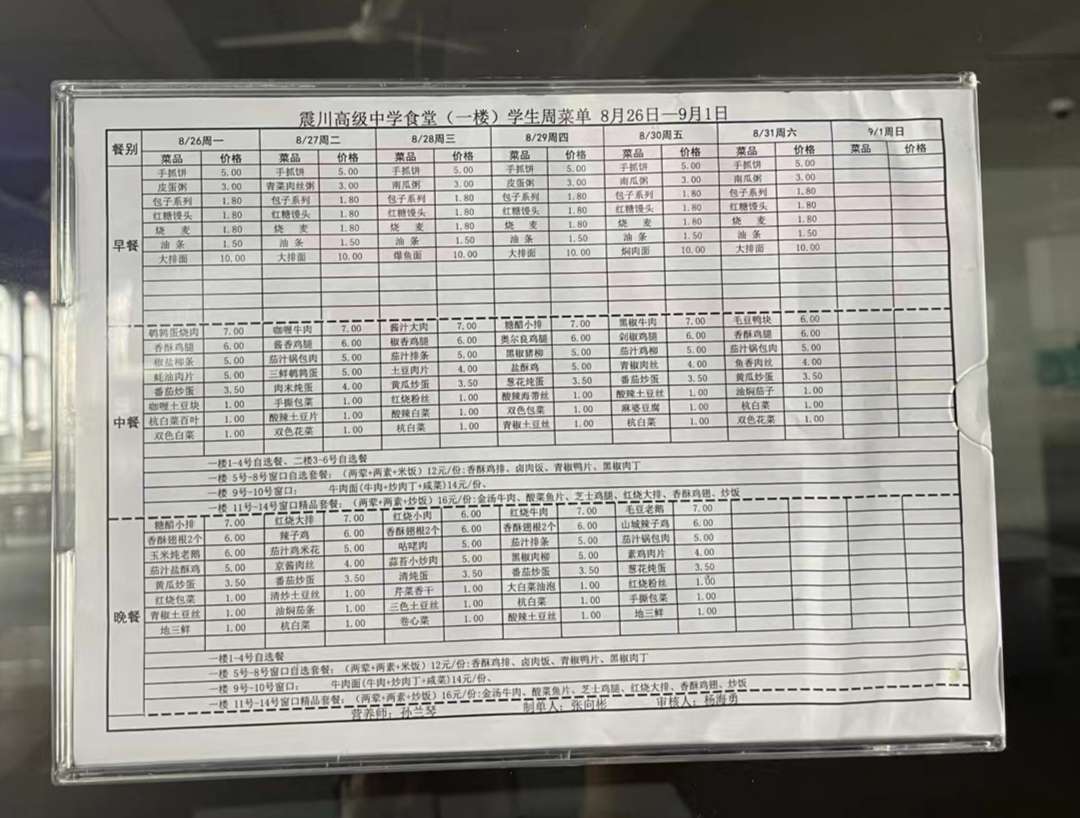 震川高级中学食堂（一楼）学生周菜单 8月26日—9月1日
餐别 8/26周一 8/27周二 8/28周三 8/29周四 8/30周五 8/31周六 9/1周日
菜品 价格 菜品 价格 菜品 价格 菜品 价格 菜品 价格 菜品 价格 菜品 价格
早餐
手抓饼 5.00 手抓饼 5.00 手抓饼 5.00 手抓饼 5.00 手抓饼 5.00 手抓饼 5.00
皮蛋粥 3.00 青菜肉丝粥 3.00 南瓜粥 3.00 皮蛋粥 3.00 南瓜粥 3.00 南瓜粥 3.00
包子系列 1.80 包子系列 1.80 包子系列 1.80 包子系列 1.80 包子系列 1.80 包子系列 1.80
红糖馒头 1.80 红糖馒头 1.80 红糖馒头 1.80 红糖馒头 1.80 红糖馒头 1.80 红糖馒头 1.80
烧 麦 1.80 烧 麦 1.80 烧 麦 1.80 烧 麦 1.80 烧 麦 1.80 烧 麦 1.80
油 条 1.50 油 条 1.50 油 条 1.50 油 条 1.50 油 条 1.50 油 条 1.50
大排面 10.00 大排面 10.00 爆鱼面 10.00 大排面 10.00 焖肉面 10.00 大排面 10.00
中餐
鹌鹑蛋烧肉 7.00 咖喱牛肉 7.00 酱汁大肉 7.00 糖醋小排 7.00 黑椒牛肉 7.00 毛豆鸭块 6.00
香酥鸡腿 6.00 酱香鸡腿 6.00 椒香鸡腿 6.00 奥尔良鸡腿 6.00 剁椒鸡腿 6.00 香酥鸡腿 6.00
椒盐柳条 5.00 茄汁锅包肉 5.00 茄汁排条 5.00 黑椒猪柳 5.00 茄汁鸡柳 5.00 茄汁锅包肉 5.00
蚝油肉片 5.00 三鲜鹌鹑蛋 5.00 土豆肉片 4.00 盐酥鸡 5.00 青椒肉丝 4.00 鱼香肉丝 4.00
番茄炒蛋 3.50 肉末炖蛋 4.00 黄瓜炒蛋 3.50 葱花炖蛋 3.50 番茄炒蛋 3.50 黄瓜炒蛋 3.50
咖喱土豆块 1.00 手撕包菜 1.00 红烧粉丝 1.00 酸辣海带丝 1.00 酸辣土豆丝 1.00 油焖茄子 1.00
杭白菜百叶 1.00 酸辣土豆片 1.00 酸辣白菜 1.00 双色包菜 1.00 麻婆豆腐 1.00 杭白菜 1.00
双色白菜 1.00 双色花菜 1.00 杭白菜 1.00 青椒土豆丝 1.00 杭白菜 1.00 双色花菜 1.00
一楼1-4号自选餐、二楼3-6号自选餐
一楼 5号-8号窗口自选套餐：（两荤+两素+米饭）12元/份:香酥鸡排、卤肉饭、青椒鸭片、黑椒肉丁
一楼 9号-10号窗口： 牛肉面(牛肉+炒肉丁+咸菜)14元/份、
一楼 11号-14号窗口精品套餐：（两荤+两素+炒饭）16元/份:金汤牛肉、酸菜鱼片、芝士鸡腿、红烧大排、香酥鸡翅、炒饭
晚餐
糖醋小排 7.00 红烧大排 7.00 红烧小肉 6.00 红烧牛肉 7.00 毛豆老鹅 7.00
香酥翅根2个 6.00 辣子鸡 6.00 香酥翅根2个 6.00 香酥翅根2个 6.00 山城辣子鸡 6.00
玉米炖老鹅 6.00 茄汁鸡米花 5.00 咕咾肉 5.00 茄汁排条 5.00 茄汁锅包肉 5.00
茄汁盐酥鸡 5.00 京酱肉丝 5.00 蒜苔小炒肉 5.00 黑椒肉柳 5.00 素鸡肉片 4.00
黄瓜炒蛋 3.50 番茄炒蛋 3.50 清炖蛋 3.50 番茄炒蛋 3.50 葱花炖蛋 3.50
红烧包菜 1.00 清炒土豆丝 1.00 芹菜香干 1.00 大白菜油泡 1.00 红烧粉丝 1.00
青椒土豆丝 1.00 油焖茄条 1.00 三色土豆丝 1.00 杭白菜 1.00 手撕包菜 1.00
地三鲜 1.00 杭白菜 1.00 卷心菜 1.00 酸辣土豆丝 1.00 地三鲜 1.00
一楼1-4号自选餐
一楼 5号-8号窗口自选套餐：（两荤+两素+米饭）12元/份:香酥鸡排、卤肉饭、青椒鸭片、黑椒肉丁
一楼 9号-10号窗口： 牛肉面(牛肉+炒肉丁+咸菜)14元/份、
一楼 11号-14号窗口精品套餐：（两荤+两素+炒饭）16元/份:金汤牛肉、酸菜鱼片、芝士鸡腿、红烧大排、香酥鸡翅、炒饭
营养师：孙兰琴 制单人：张向彬 审核人：杨海勇